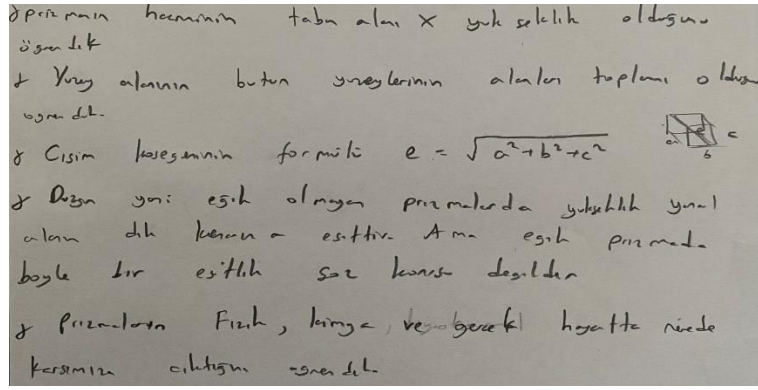 prizmanın hacminin taban alanı x yükseklik olduğunu
öğrendik
Yüzey alanının bütün yüzeylerinin alanları toplamı olduğu
öğrendik.
Cisim köşegeninin formülü e = √a²+b²+c² a b c
Düzgün yani eğik olmayan prizmalarda yükseklik yanal
alanın dik kenarına eşittir. Ama eğik prizmada
böyle bir eşitlik söz konusu değildir
Prizmaların Fizik, kimya, ve gerçek hayatta nerede
karşımıza çıktığını öğrendik.